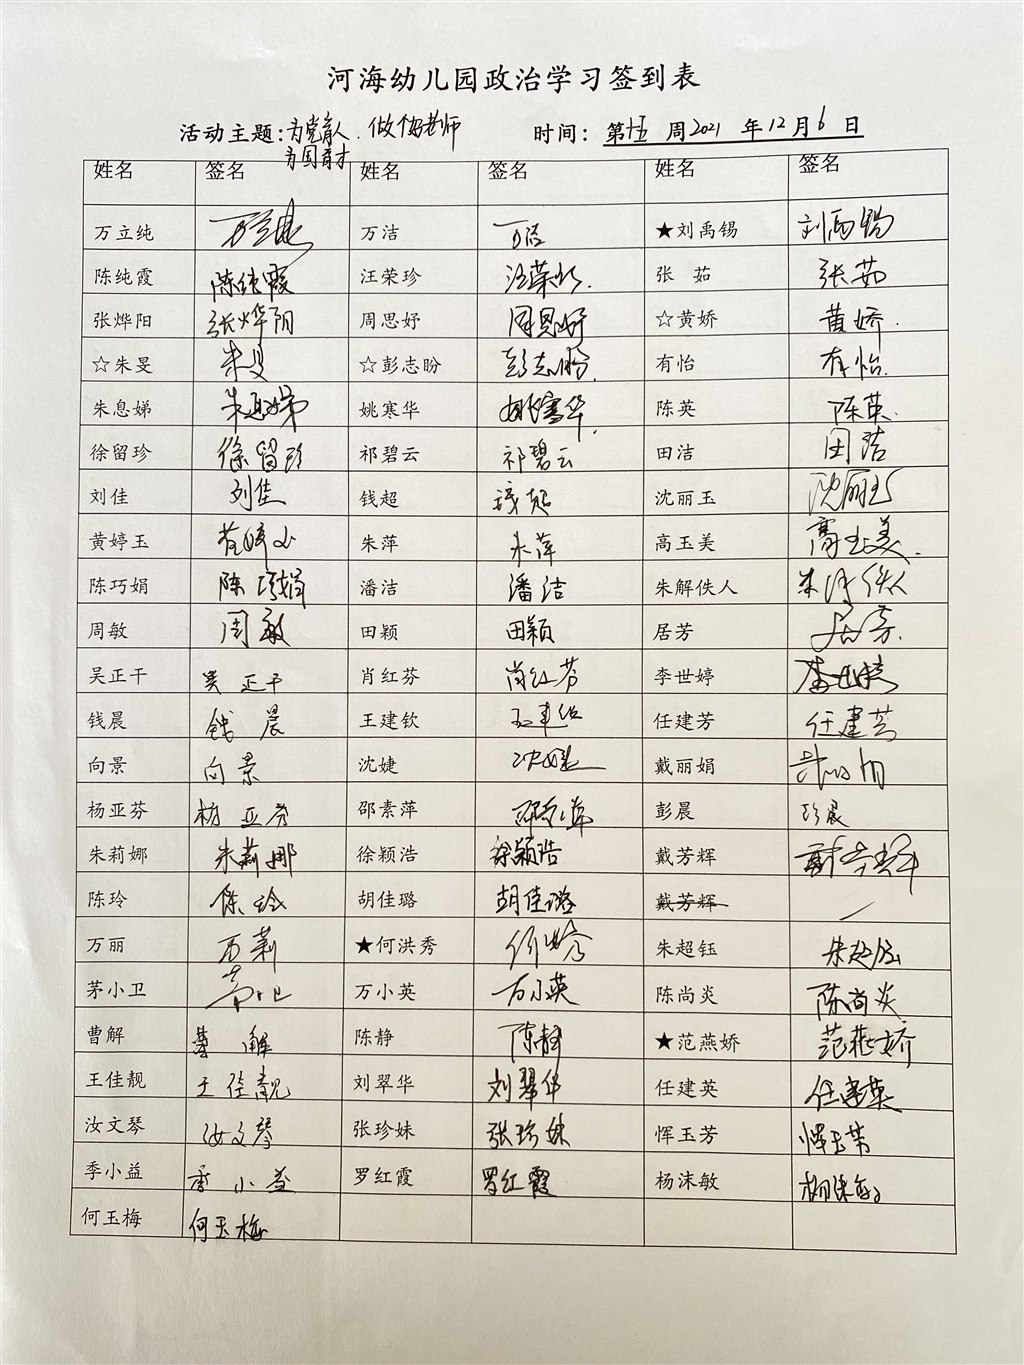 河海幼儿园政治学习签到表
活动主题:为党育人、做个好老师 时间：第十五周2021年12月6日
为国育才
姓名 签名 姓名 签名 姓名 签名
万立纯 万立纯 万洁 万洁 ★刘禹锡 刘禹锡
陈纯霞 陈纯霞 汪荣珍 汪荣珍. 张 茹 张茹
张烨阳 张烨阳 周思妤 周思妤 ☆黄娇 黄娇.
☆朱旻 朱旻 ☆彭志盼 彭志盼. 有怡 有怡.
朱息娣 朱息娣 姚寒华 姚寒华. 陈英 陈英.
徐留珍 徐留珍 祁碧云 祁碧云 田洁 田洁
刘佳 刘佳 钱超 钱超 沈丽玉 沈丽玉
黄婷玉 黄婷玉 朱萍 朱萍 高玉美 高玉美.
陈巧娟 陈巧娟 潘洁 潘洁 朱解佚人 朱解佚人
周敏 周敏 田颖 田颖 居芳 居芳.
吴正干 吴正干 肖红芬 肖红芬 李世婷 李世婷
钱晨 钱晨 王建钦 王建钦 任建芳 任建芳
向景 向景 沈婕 沈婕 戴丽娟 戴丽娟
杨亚芬 杨亚芬 邵素萍 邵素萍 彭晨 彭晨
朱莉娜 朱莉娜 徐颖浩 徐颖浩 戴芳辉 戴芳辉
陈玲 陈玲 胡佳璐 胡佳璐 戴芳辉
万丽 万莉 ★何洪秀 何洪秀 朱超钰 朱超钰
茅小卫 茅小卫 万小英 万小英 陈尚炎 陈尚炎
曹解 曹解 陈静 陈静 ★范燕娇 范燕娇
王佳靓 王佳靓 刘翠华 刘翠华 任建英 任建英
汝文琴 汝文琴 张珍妹 张珍妹 恽玉芳 恽玉芳
季小益 季小益 罗红霞 罗红霞 杨沫敏 杨沫敏
何玉梅 何玉梅